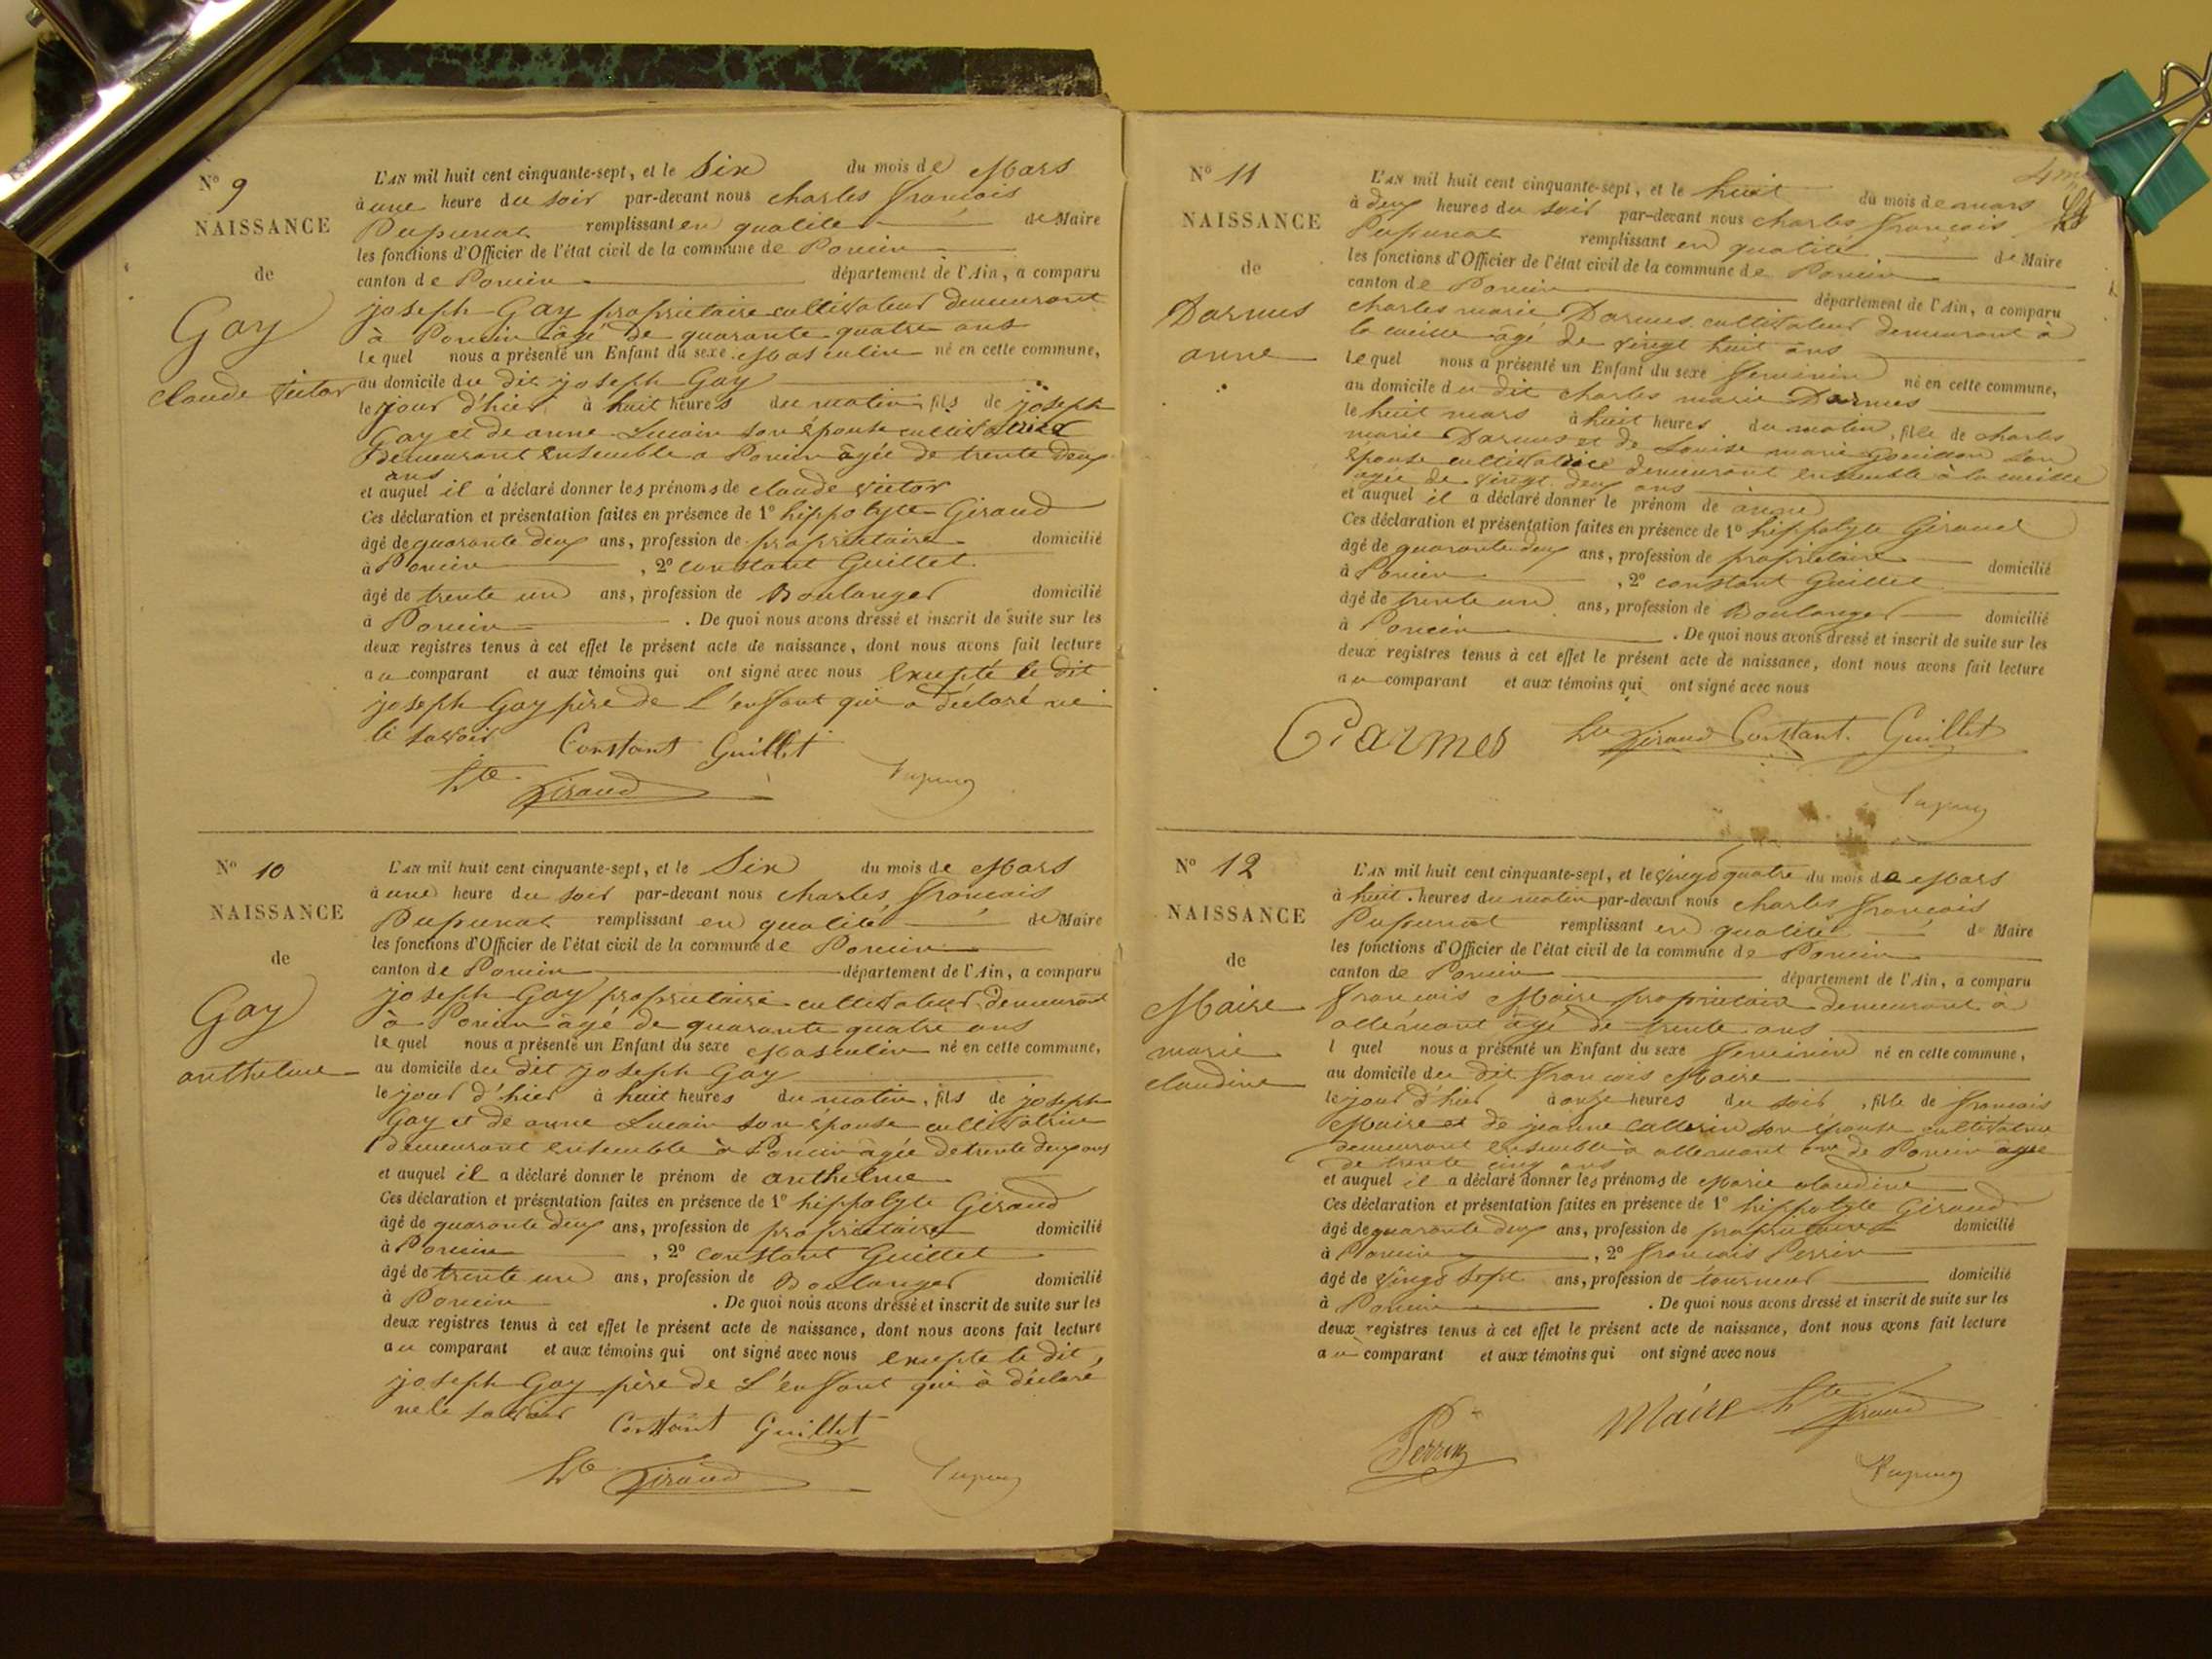 N° 9
NAISSANCE
de
Gay
claude victor
L'AN mil huit cent cinquante-sept, et le Six du mois de Mars
à une heure du soir par-devant nous charles françois
Pupunat remplissant en qualité de Maire
les fonctions d'Officier de l'état civil de la commune de Poncin
canton de Poncin département de l'Ain, a comparu
joseph Gay propriétaire cultivateur demeurant
à Poncin âgé de quarante quatre ans
lequel nous a présenté un Enfant du sexe Masculin né en cette commune,
au domicile du dit joseph Gay
le jour d'hier à huit heures du matin fils de joseph
Gay et de anne Lucain son épouse cultivatrice
demeurant ensemble a Poncin âgée de trente deux
ans
et auquel il a déclaré donner les prénoms de claude victor
Ces déclaration et présentation faites en présence de 1° hippolyte Giraud
âgé de quarante deux ans, profession de propriétaire domicilié
à Poncin , 2° constant Guillet
âgé de trente un ans, profession de Boulanger domicilié
à Poncin . De quoi nous avons dressé et inscrit de suite sur les
deux registres tenus à cet effet le présent acte de naissance, dont nous avons fait lecture
au comparant et aux témoins qui ont signé avec nous excepté le dit
joseph Gay père de L'enfant qui a déclaré ne
le savoir Constant Guillet
hte Giraud Pupunat
N° 10
NAISSANCE
de
Gay
anthelme
L'AN mil huit cent cinquante-sept, et le Six du mois de Mars
à une heure du soir par-devant nous charles françois
Pupunat remplissant en qualité de Maire
les fonctions d'Officier de l'état civil de la commune de Poncin
canton de Poncin département de l'Ain, a comparu
joseph Gay propriétaire cultivateur demeurant
à Poncin âgé de quarante quatre ans
lequel nous a présenté un Enfant du sexe Masculin né en cette commune,
au domicile du dit joseph Gay
le jour d'hier à huit heures du matin, fils de joseph
Gay et de anne Lucain son épouse cultivatrice
demeurant ensemble à Poncin âgée de trente deux ans
et auquel il a déclaré donner le prénom de anthelme
Ces déclaration et présentation faites en présence de 1° hippolyte Giraud
âgé de quarante deux ans, profession de propriétaire domicilié
à Poncin , 2° constant Guillet
âgé de trente un ans, profession de Boulanger domicilié
à Poncin . De quoi nous avons dressé et inscrit de suite sur les
deux registres tenus à cet effet le présent acte de naissance, dont nous avons fait lecture
au comparant et aux témoins qui ont signé avec nous excepte le dit
joseph Gay père de L'enfant qui à déclaré
ne le savoir Constant Guillet
hte Giraud Pupunat
N° 11
NAISSANCE
de
Darmes
anne
L'AN mil huit cent cinquante-sept, et le huit du mois de mars
à deux heures du soir par-devant nous charles françois
Pupunat remplissant en qualité de Maire
les fonctions d'Officier de l'état civil de la commune de Poncin
canton de Poncin département de l'Ain, a comparu
charles marie Darmes cultivateur demeurant à
la cueille âgé de vingt huit ans
lequel nous a présenté un Enfant du sexe feminin né en cette commune,
au domicile du dit charles marie Darmes
le huit mars à huit heures du matin, fille de charles
marie Darmes et de Louise marie son
épouse cultivatrice demeurant ensemble à la cueille
agée de vingt deux ans
et auquel il a déclaré donner le prénom de anne
Ces déclaration et présentation faites en présence de 1° hippolyte Giraud
âgé de quarante deux ans, profession de propriétaire domicilié
à Poncin , 2° constant Guillet
âgé de trente un ans, profession de Boulanger domicilié
à Poncin . De quoi nous avons dressé et inscrit de suite sur les
deux registres tenus à cet effet le présent acte de naissance, dont nous avons fait lecture
au comparant et aux témoins qui ont signé avec nous
Darmes hte Giraud Constant Guillet
Pupunat
N° 12
NAISSANCE
de
Maire
marie
claudine
L'AN mil huit cent cinquante-sept, et le vingt quatre du mois de Mars
à huit heures du matin par-devant nous charles françois
Pupunat remplissant en qualité de Maire
les fonctions d'Officier de l'état civil de la commune de Poncin
canton de Poncin département de l'Ain, a comparu
françois Maire propriétaire demeurant à
allemant âgé de trente ans
l quel nous a présenté un Enfant du sexe feminin né en cette commune,
au domicile du dit françois Maire
le jour d'hier à onze heures du soir , fille de françois
Maire et de jeanne son épouse cultivatrice
demeurant ensemble à allemant de Poncin âgée
de trente cinq ans
et auquel il a déclaré donner les prénoms de Marie claudine
Ces déclaration et présentation faites en présence de 1° hippolyte Giraud
âgé de quarante deux ans, profession de propriétaire domicilié
à Poncin , 2° françois Perrin
âgé de vingt sept ans, profession de tourneur domicilié
à Poncin . De quoi nous avons dressé et inscrit de suite sur les
deux registres tenus à cet effet le présent acte de naissance, dont nous avons fait lecture
au comparant et aux témoins qui ont signé avec nous
Perrin Maire hte Giraud
Pupunat